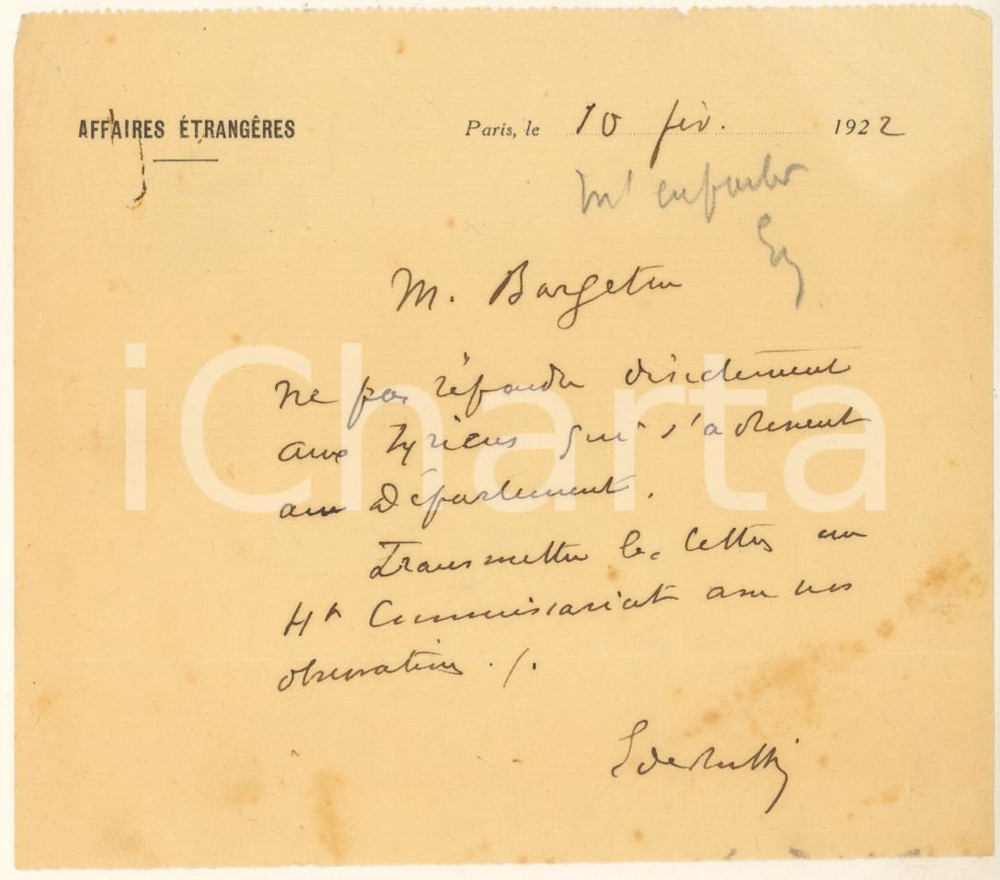 AFFAIRES ÉTRANGÈRES
Paris, le 10 fév. 1922
M' en parler
M. Bargeton
ne pas répondre directement
aux Syriens qui s'adressent
au Département.
Transmettre les lettres au
Ht Commissariat avec nos
observations ./.
iCharta